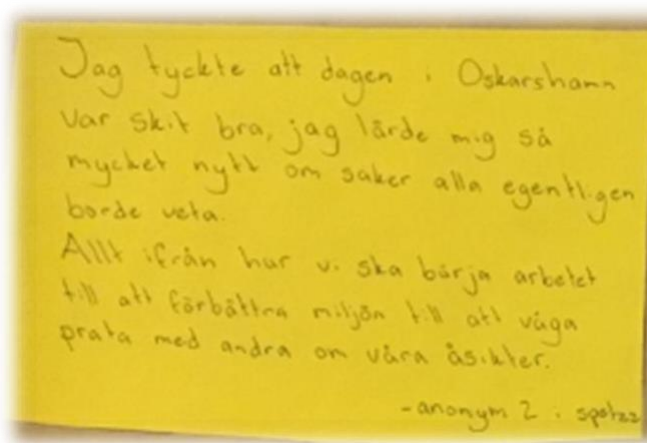 Jag tyckte att dagen i Oskarshamn
var skit bra, jag lärde mig så
mycket nytt om saker alla egentligen
borde veta.
Allt ifrån hur vi ska börja arbetet
till att förbättra miljön till att våga
prata med andra om våra åsikter.
-anonym 2 i